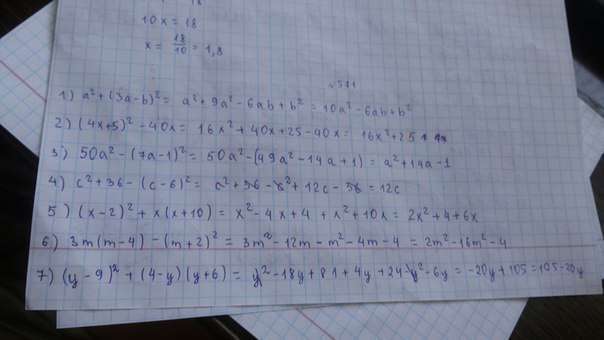 10x = 18
x = 18/10 = 1,8
1) a² + (3a-b)² = a² + 9a² - 6ab + b² = 10a² - 6ab + b²
2) (4x+5)² - 40x = 16x² + 40x + 25 - 40x = 16x² + 25
3) 50a² - (7a-1)² = 50a² - (49a² - 14a + 1) = a² + 14a - 1
4) c² + 36 - (c-6)² = c² + 36 - c² + 12c - 36 = 12c
5) (x-2)² + x(x+10) = x² - 4x + 4 + x² + 10x = 2x² + 4 + 6x
6) 3m(m-4) - (m+2)² = 3m² - 12m - m² - 4m - 4 = 2m² - 16m² - 4
7) (y-9)² + (4-y)(y+6) = y² - 18y + 81 + 4y + 24 - y² - 6y = -20y + 105 = 105 - 20y